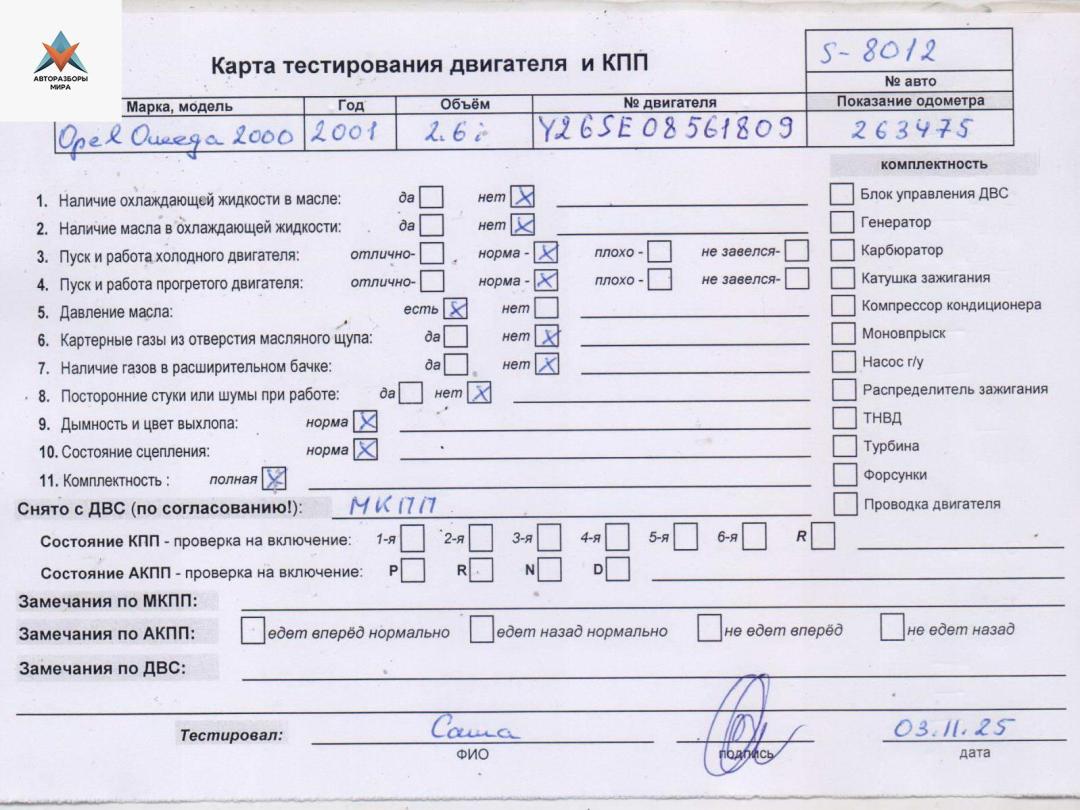 АВТОРАЗБОРЫ
МИРА
Карта тестирования двигателя и КПП
S-8012
№ авто
Марка, модель Год Объём № двигателя Показание одометра
Opel Omega 2000 2001 2.6i Y26SE08561809 263475
комплектность
1. Наличие охлаждающей жидкости в масле: да нет X Блок управления ДВС
2. Наличие масла в охлаждающей жидкости: да нет X Генератор
3. Пуск и работа холодного двигателя: отлично- норма - X плохо - не завелся- Карбюратор
4. Пуск и работа прогретого двигателя: отлично- норма - X плохо - не завелся- Катушка зажигания
5. Давление масла: есть X нет Компрессор кондиционера
6. Картерные газы из отверстия масляного щупа: да нет X Моновпрыск
7. Наличие газов в расширительном бачке: да нет X Насос г/у
8. Посторонние стуки или шумы при работе: да нет X Распределитель зажигания
9. Дымность и цвет выхлопа: норма X ТНВД
10. Состояние сцепления: норма X Турбина
11. Комплектность : полная X Форсунки
Снято с ДВС (по согласованию!): МКПП Проводка двигателя
Состояние КПП - проверка на включение: 1-я 2-я 3-я 4-я 5-я 6-я R
Состояние АКПП - проверка на включение: P R N D
Замечания по МКПП:
Замечания по АКПП: едет вперёд нормально едет назад нормально не едет вперёд не едет назад
Замечания по ДВС:
Тестировал: Саша 03.11.25
ФИО подпись дата